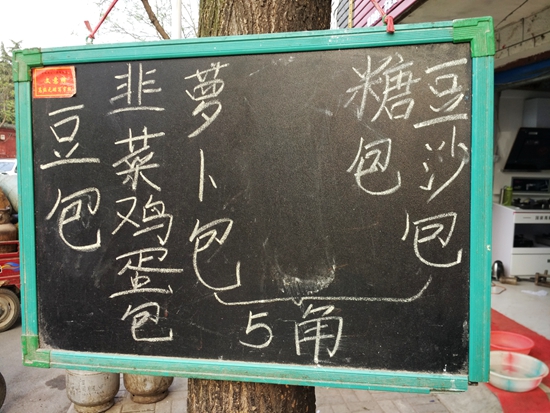 豆沙包
糖包
萝卜包
韭菜鸡蛋包
豆包
5角